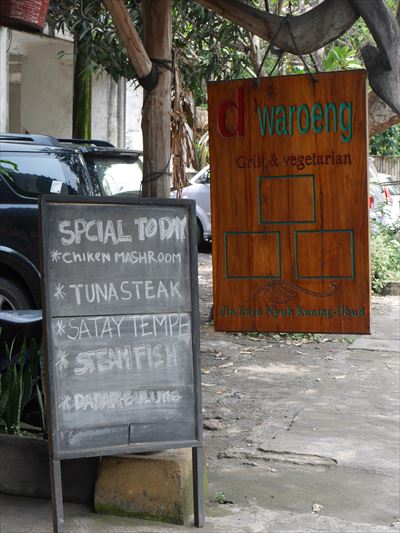 SPCIAL TODAY
*CHIKEN MASHROOM
*TUNA STEAK
*SATAY TEMPE
*STEAM FISH
*DADAR GULUNG
d'waroeng
Grill & vegetarian
Jln Raya Nyuh Kuning-Ubud